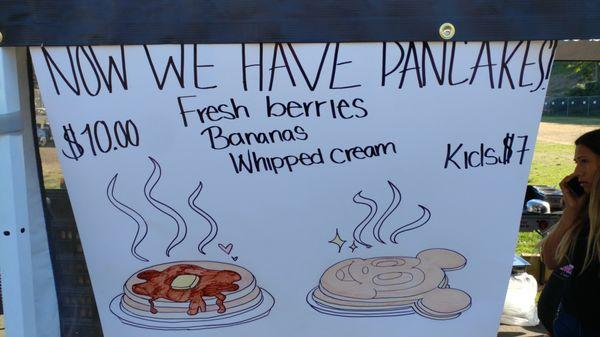 NOW WE HAVE PANCAKES!
Fresh berries
$10.00
Bananas
Whipped cream
Kids $7